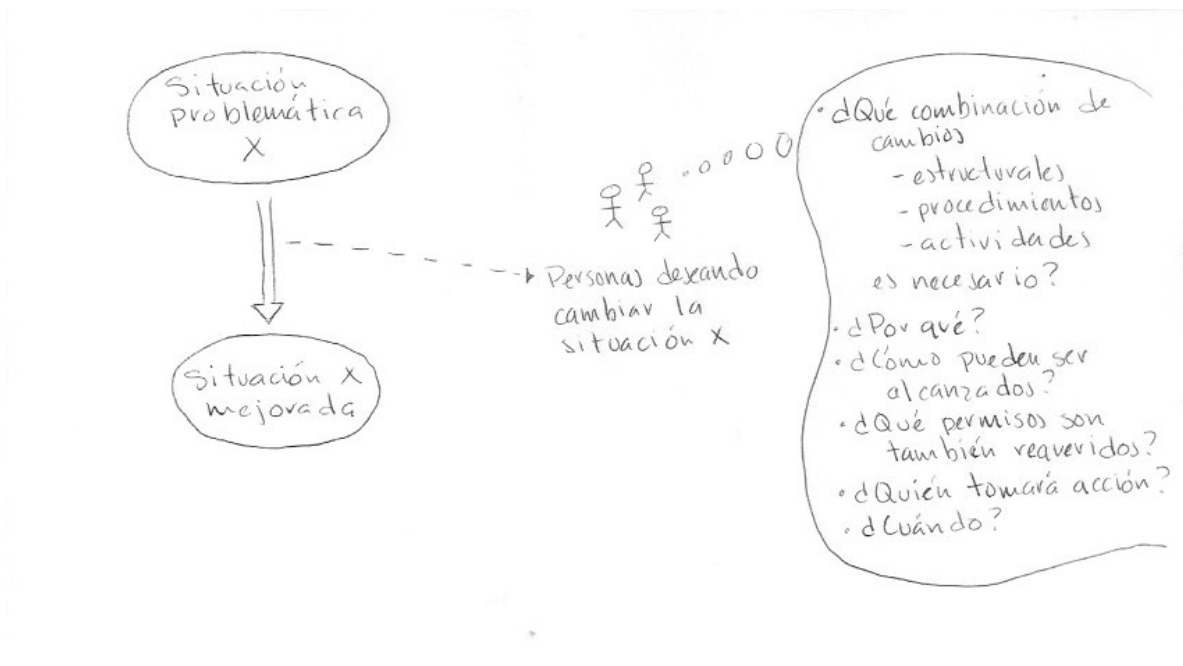 Situación
problemática
X
Situación X
mejorada
Personas deseando
cambiar la
situación X
• ¿Qué combinación de
cambios
- estructurales
- procedimientos
- actividades
es necesario?
• ¿Por qué?
• ¿Cómo pueden ser
alcanzados?
• ¿Qué permisos son
también requeridos?
• ¿Quién tomará acción?
• ¿Cuándo?